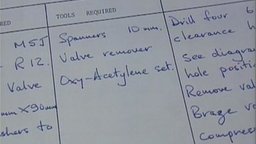 RED
TOOLS REQUIRED
M5J
R12.
Valve
mm X90mm
shers to
Spanners 10 mm.
Valve remover
Oxy-Acetylene set.
Drill four 6
clearance
See diagram
hole positi
Remove val
Braze va
compress